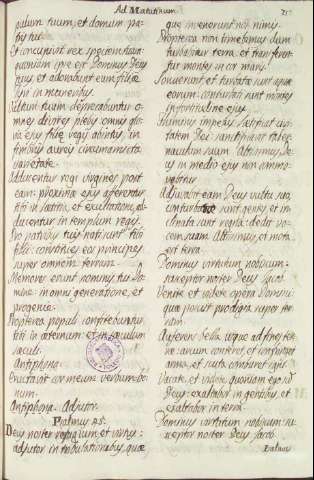 Ad Matutinum.
pulum tuum, et domum pa-
tris tui.
Et concupiscet rex speciem tuam:
quoniam ipse est Dominus Deus
tuus, et adorabunt eum filiæ
Tyri in muneribus.
Vultum tuum deprecabuntur o-
mnes divites plebis, omnis glo-
ria ejus filiæ regis ab intus, in
fimbriis aureis circumamicta
varietate.
Adducentur regi virgines post
eam: proximæ ejus afferentur
tibi in lætitia, et exultatione, ad-
ducentur in templum regis.
Pro patribus tuis nati sunt tibi
filii: constitues eos principes
super omnem terram.
Memores erunt nominis tui Do-
mine: in omni generatione, et
progenie.
Propterea populi confitebuntur
tibi in æternum et in sæculum
sæculi.
Antiphona.
Eructavit cor meum verbum bo-
num.
Antiphona. Adjutor.
Psalmus 45.
Deus noster refugium et virtus:
adjutor in tribulationibus, quæ
que invenerunt nos nimis.
Propterea non timebimus dum
turbabitur terra, et transferen-
tur montes in cor maris.
Sonuerunt et turbatæ sunt aquæ
eorum: conturbati sunt montes
in fortitudine ejus.
Fluminis impetus lætificat civi-
tatem Dei: sanctificavit taber-
naculum suum Altissimus. De-
us in medio ejus non commo-
vebitur
Adjuvabit eam Deus vultu suo,
conturbatæ sunt gentes, et in-
clinata sunt regna: dedit vo-
cem suam Altissimus, et mota
est terra.
Dominus virtutum nobiscum:
susceptor noster Deus Jacob.
Venite et videte opera Domini
quæ posuit prodigia super ter-
ram.
Auferens bella usque ad finem ter-
ræ arcum conteret, et confringet
arma, et scuta comburet igni.
Vacate, et videte quoniam ego sum
Deus: exaltabor in gentibus, et
exaltabor in terra.
Dominus virtutum nobiscum: su-
sceptor noster Deus Jacob.
Psalmus